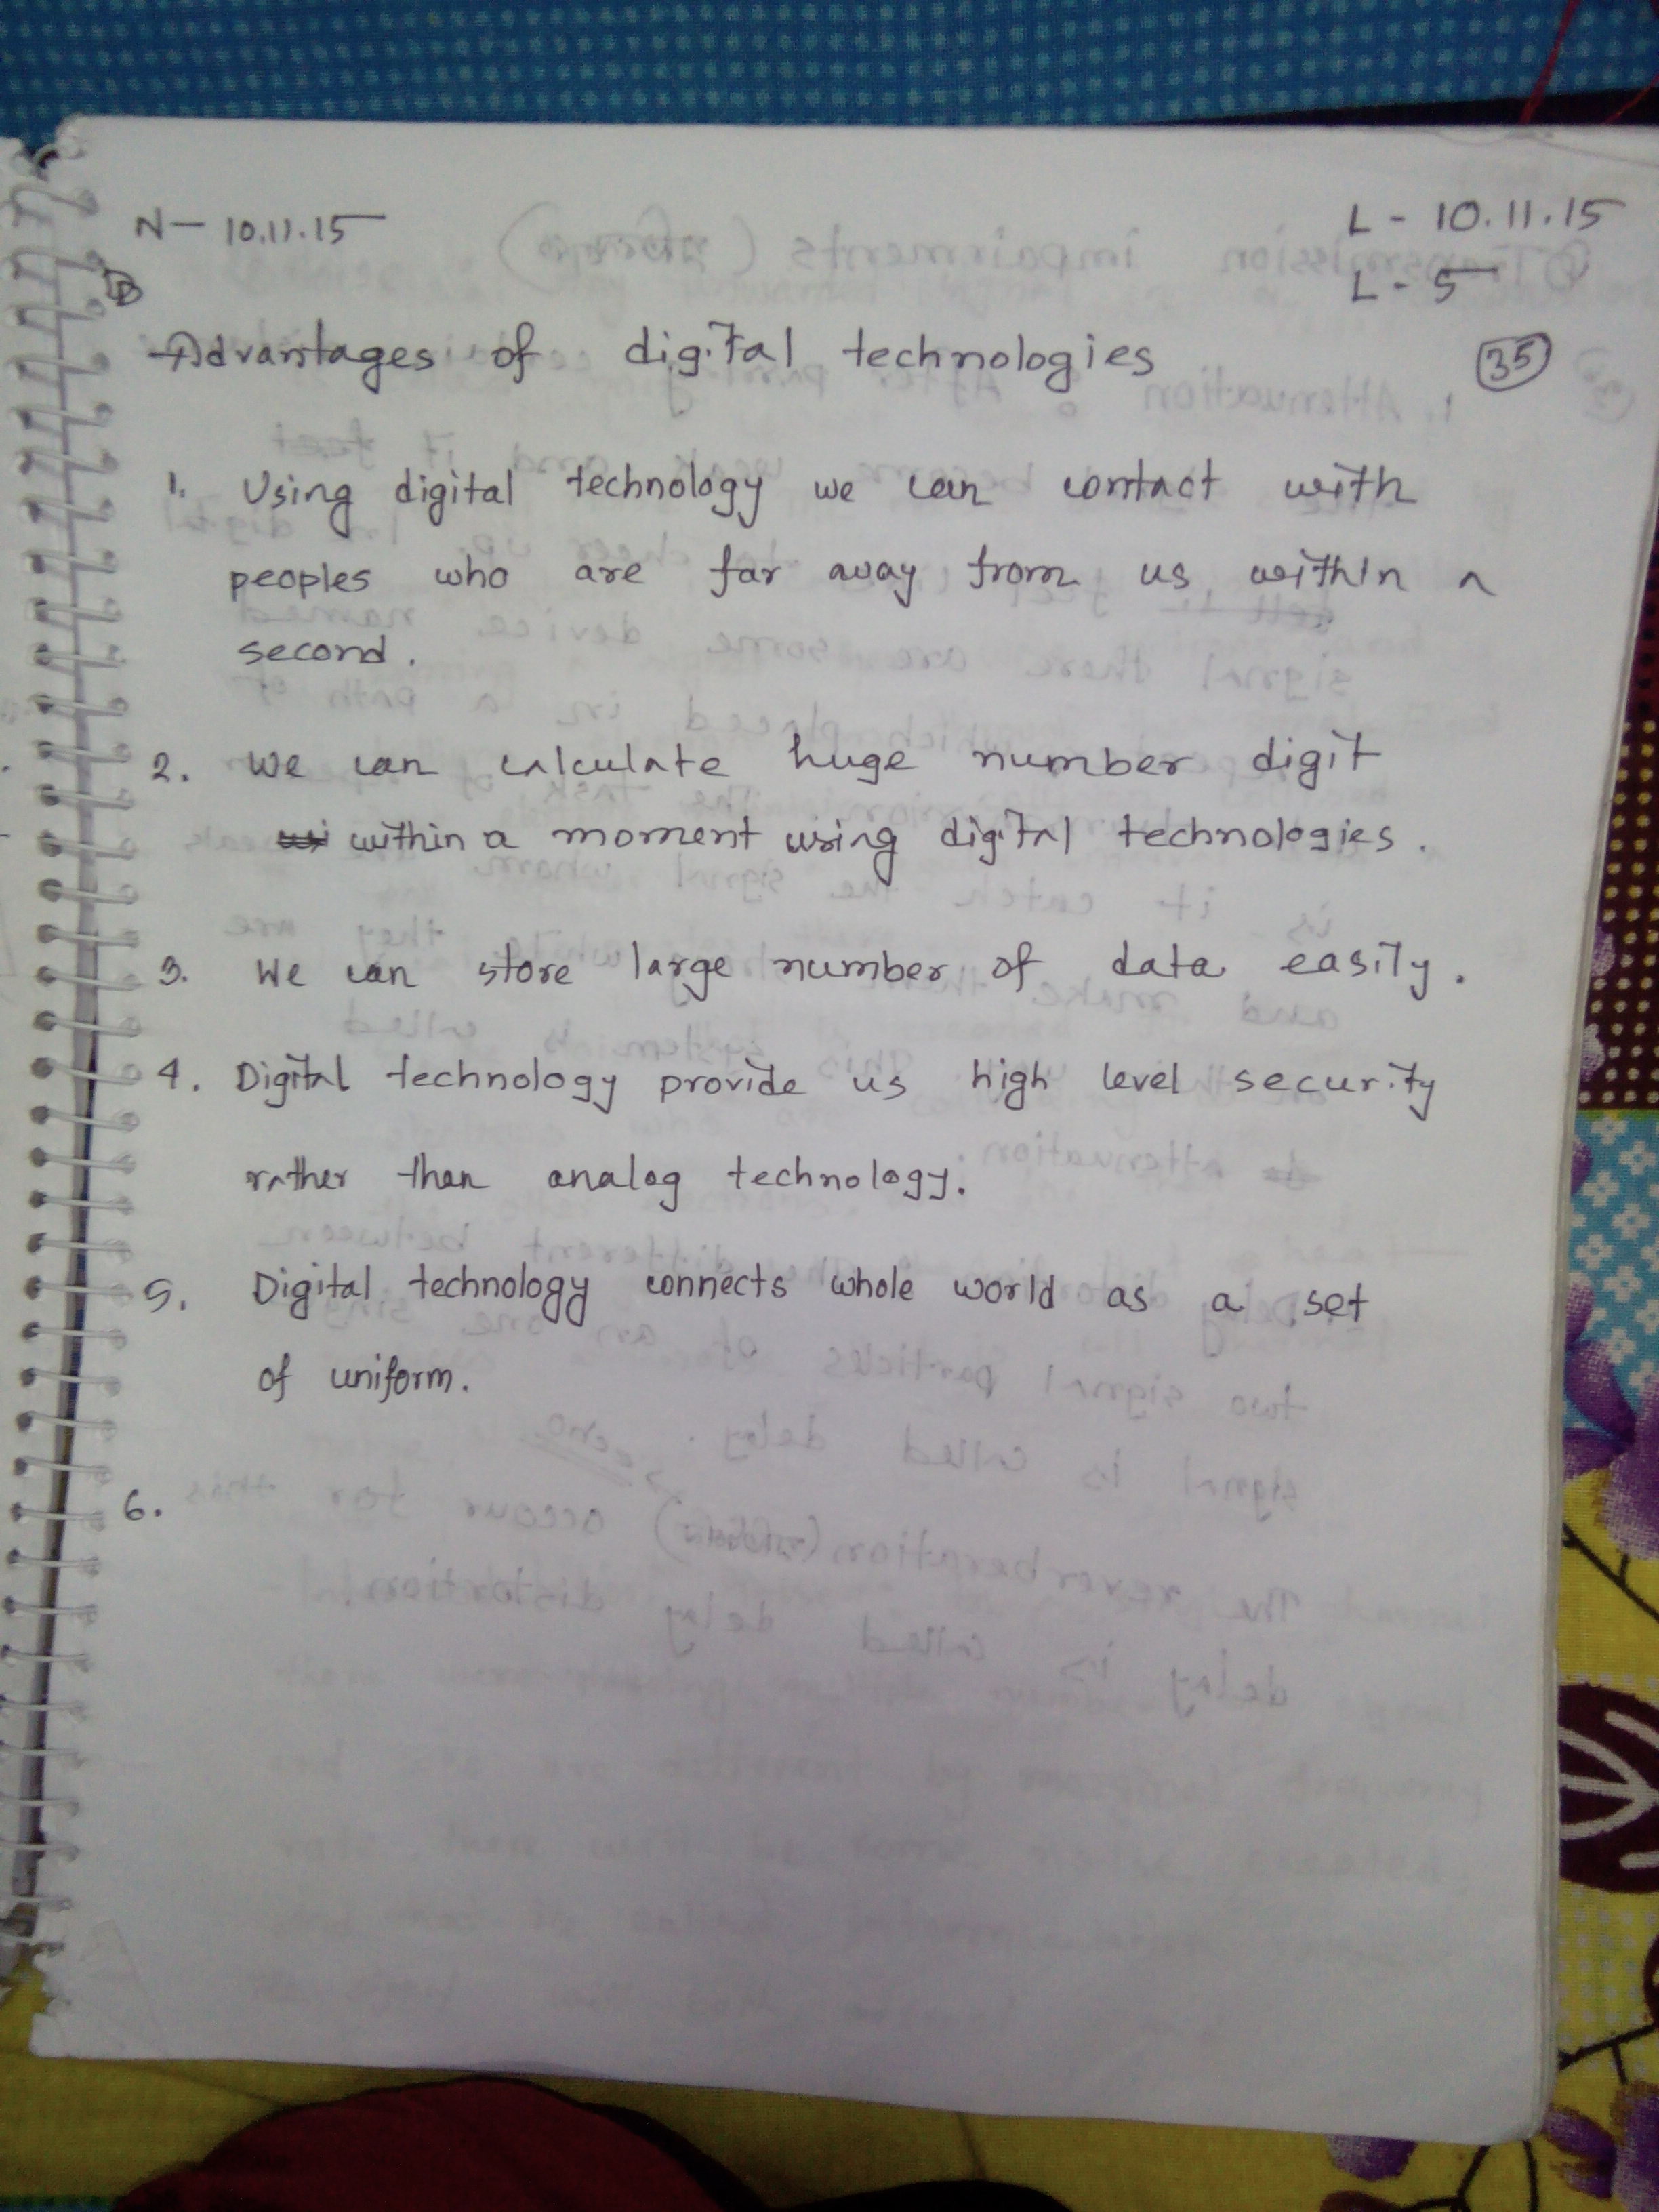 N- 10.11.15
L - 10.11.15
L - 5
Advantages of digital technologies
35
1. Using digital technology we can contact with
peoples who are far away from us within a
second.
2. We can calculate huge number digit
within a moment using digital technologies.
3. We can store large number of data easily.
4. Digital technology provide us high level security
rather than analog technology.
5. Digital technology connects whole world as a set
of uniform.
6.